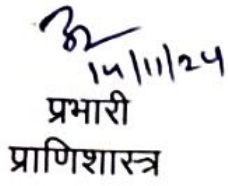 14/11/24
प्रभारी
प्राणिशास्त्र